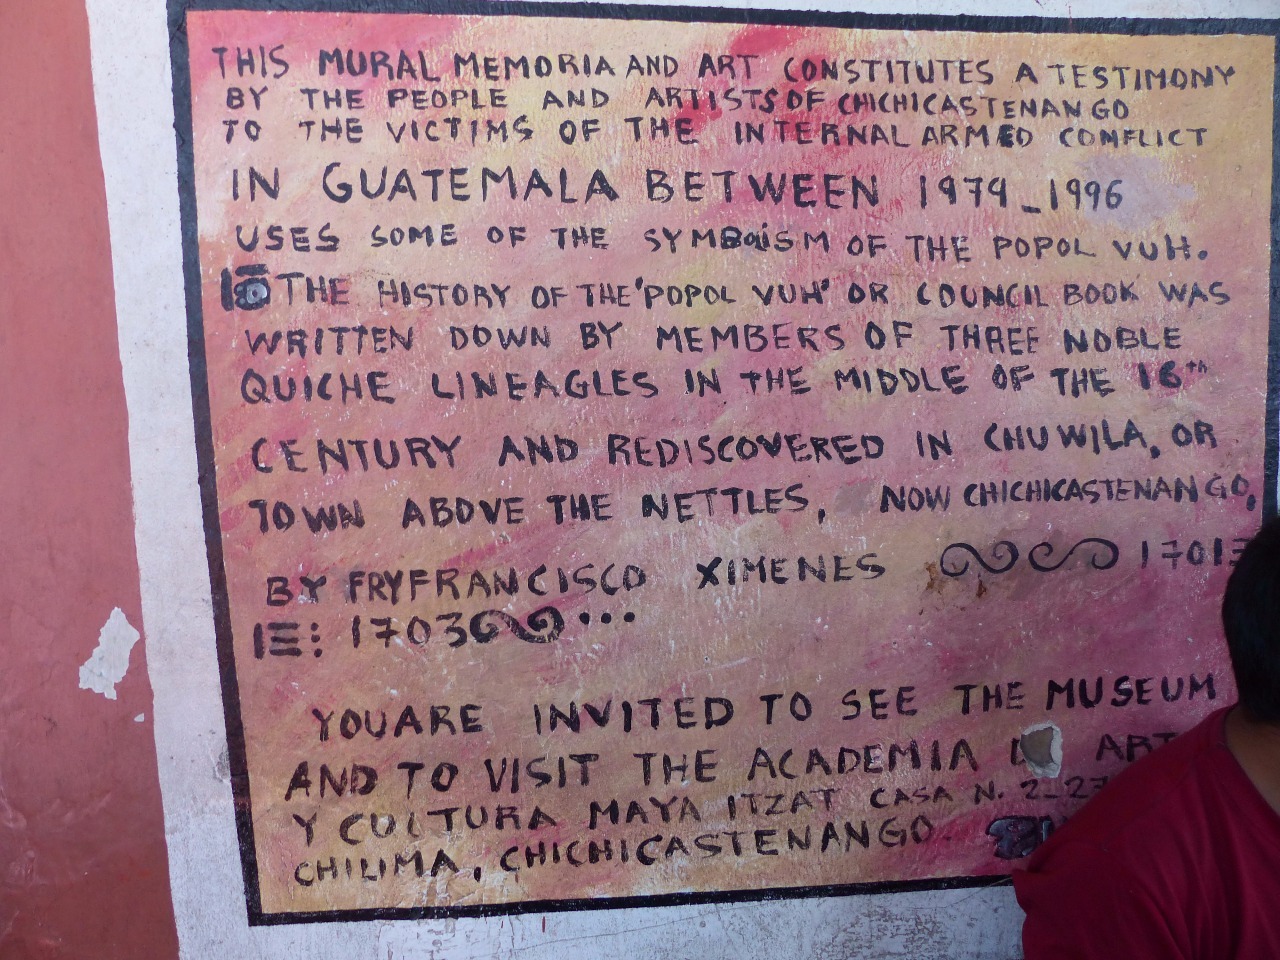 THIS MURAL MEMORIA AND ART CONSTITUTES A TESTIMONY
BY THE PEOPLE AND ARTISTS OF CHICHICASTENANGO
TO THE VICTIMS OF THE INTERNAL ARMED CONFLICT
IN GUATEMALA BETWEEN 1979_1996
USES SOME OF THE SYMBOLISM OF THE POPOL VUH.
THE HISTORY OF THE 'POPOL VUH' OR COUNCIL BOOK WAS
WRITTEN DOWN BY MEMBERS OF THREE NOBLE
QUICHE LINEAGLES IN THE MIDDLE OF THE 16th
CENTURY AND REDISCOVERED IN CHUWILA, OR
TOWN ABOVE THE NETTLES, NOW CHICHICASTENANGO,
BY FRYFRANCISCO XIMENES 1701
1703 ...
YOU ARE INVITED TO SEE THE MUSEUM
AND TO VISIT THE ACADEMIA
Y CULTURA MAYA ITZAT CASA N. 2-2
CHILIMA, CHICHICASTENANGO.